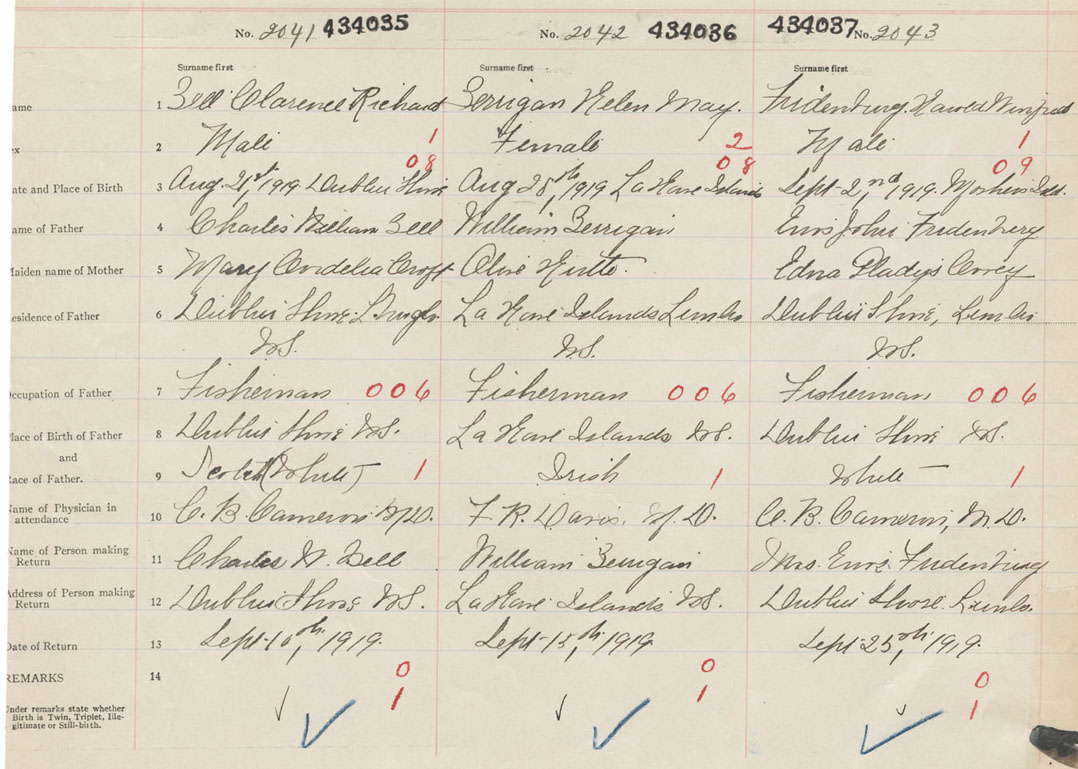 No. 2041 434035 No. 2042 434036 434037 No. 2043
Surname first Surname first Surname first
ame 1 Bell Clarence Richard Berrigan Helen May. Fridenburg. Harold Winfred
ex 2 Male 1 Female 2 Male 1
08 08 09
ate and Place of Birth 3 Aug. 21st, 1919 Dublin Shore Aug 28th, 1919 La Have Islands Sept-2nd, 1919.
ame of Father 4 Charles William Bell William Berrigan Enos John Fridenburg
Maiden name of Mother 5 Mary Cordelia Croft Olive Edna Gladys
esidence of Father 6 Dublin Shore La Have Islands Lunbs Dublin Shore, Lunbs
N.S. N.S. N.S.
ccupation of Father 7 Fisherman 006 Fisherman 006 Fisherman 006
lace of Birth of Father 8 Dublin Shore N.S. La Have Islands N.S. Dublin Shore N.S.
and
ace of Father. 9 (White) 1 Irish 1 White 1
Name of Physician in
attendance 10 C. B. Cameron M.D. F. R. Davis. M.D. C. B. Cameron, M.D.
Name of Person making
Return 11 Charles W. Bell William Berrigan Mrs. Enos Fridenburg
Address of Person making
Return 12 Dublin Shore N.S. La Have Islands N.S. Dublin Shore. Lunbs
Date of Return 13 Sept-10th, 1919 Sept-15th, 1919. Sept-25th, 1919.
REMARKS 14 0 0 0
Under remarks state whether 1 1 1
Birth is Twin, Triplet, Ille-
gitimate or Still-birth.